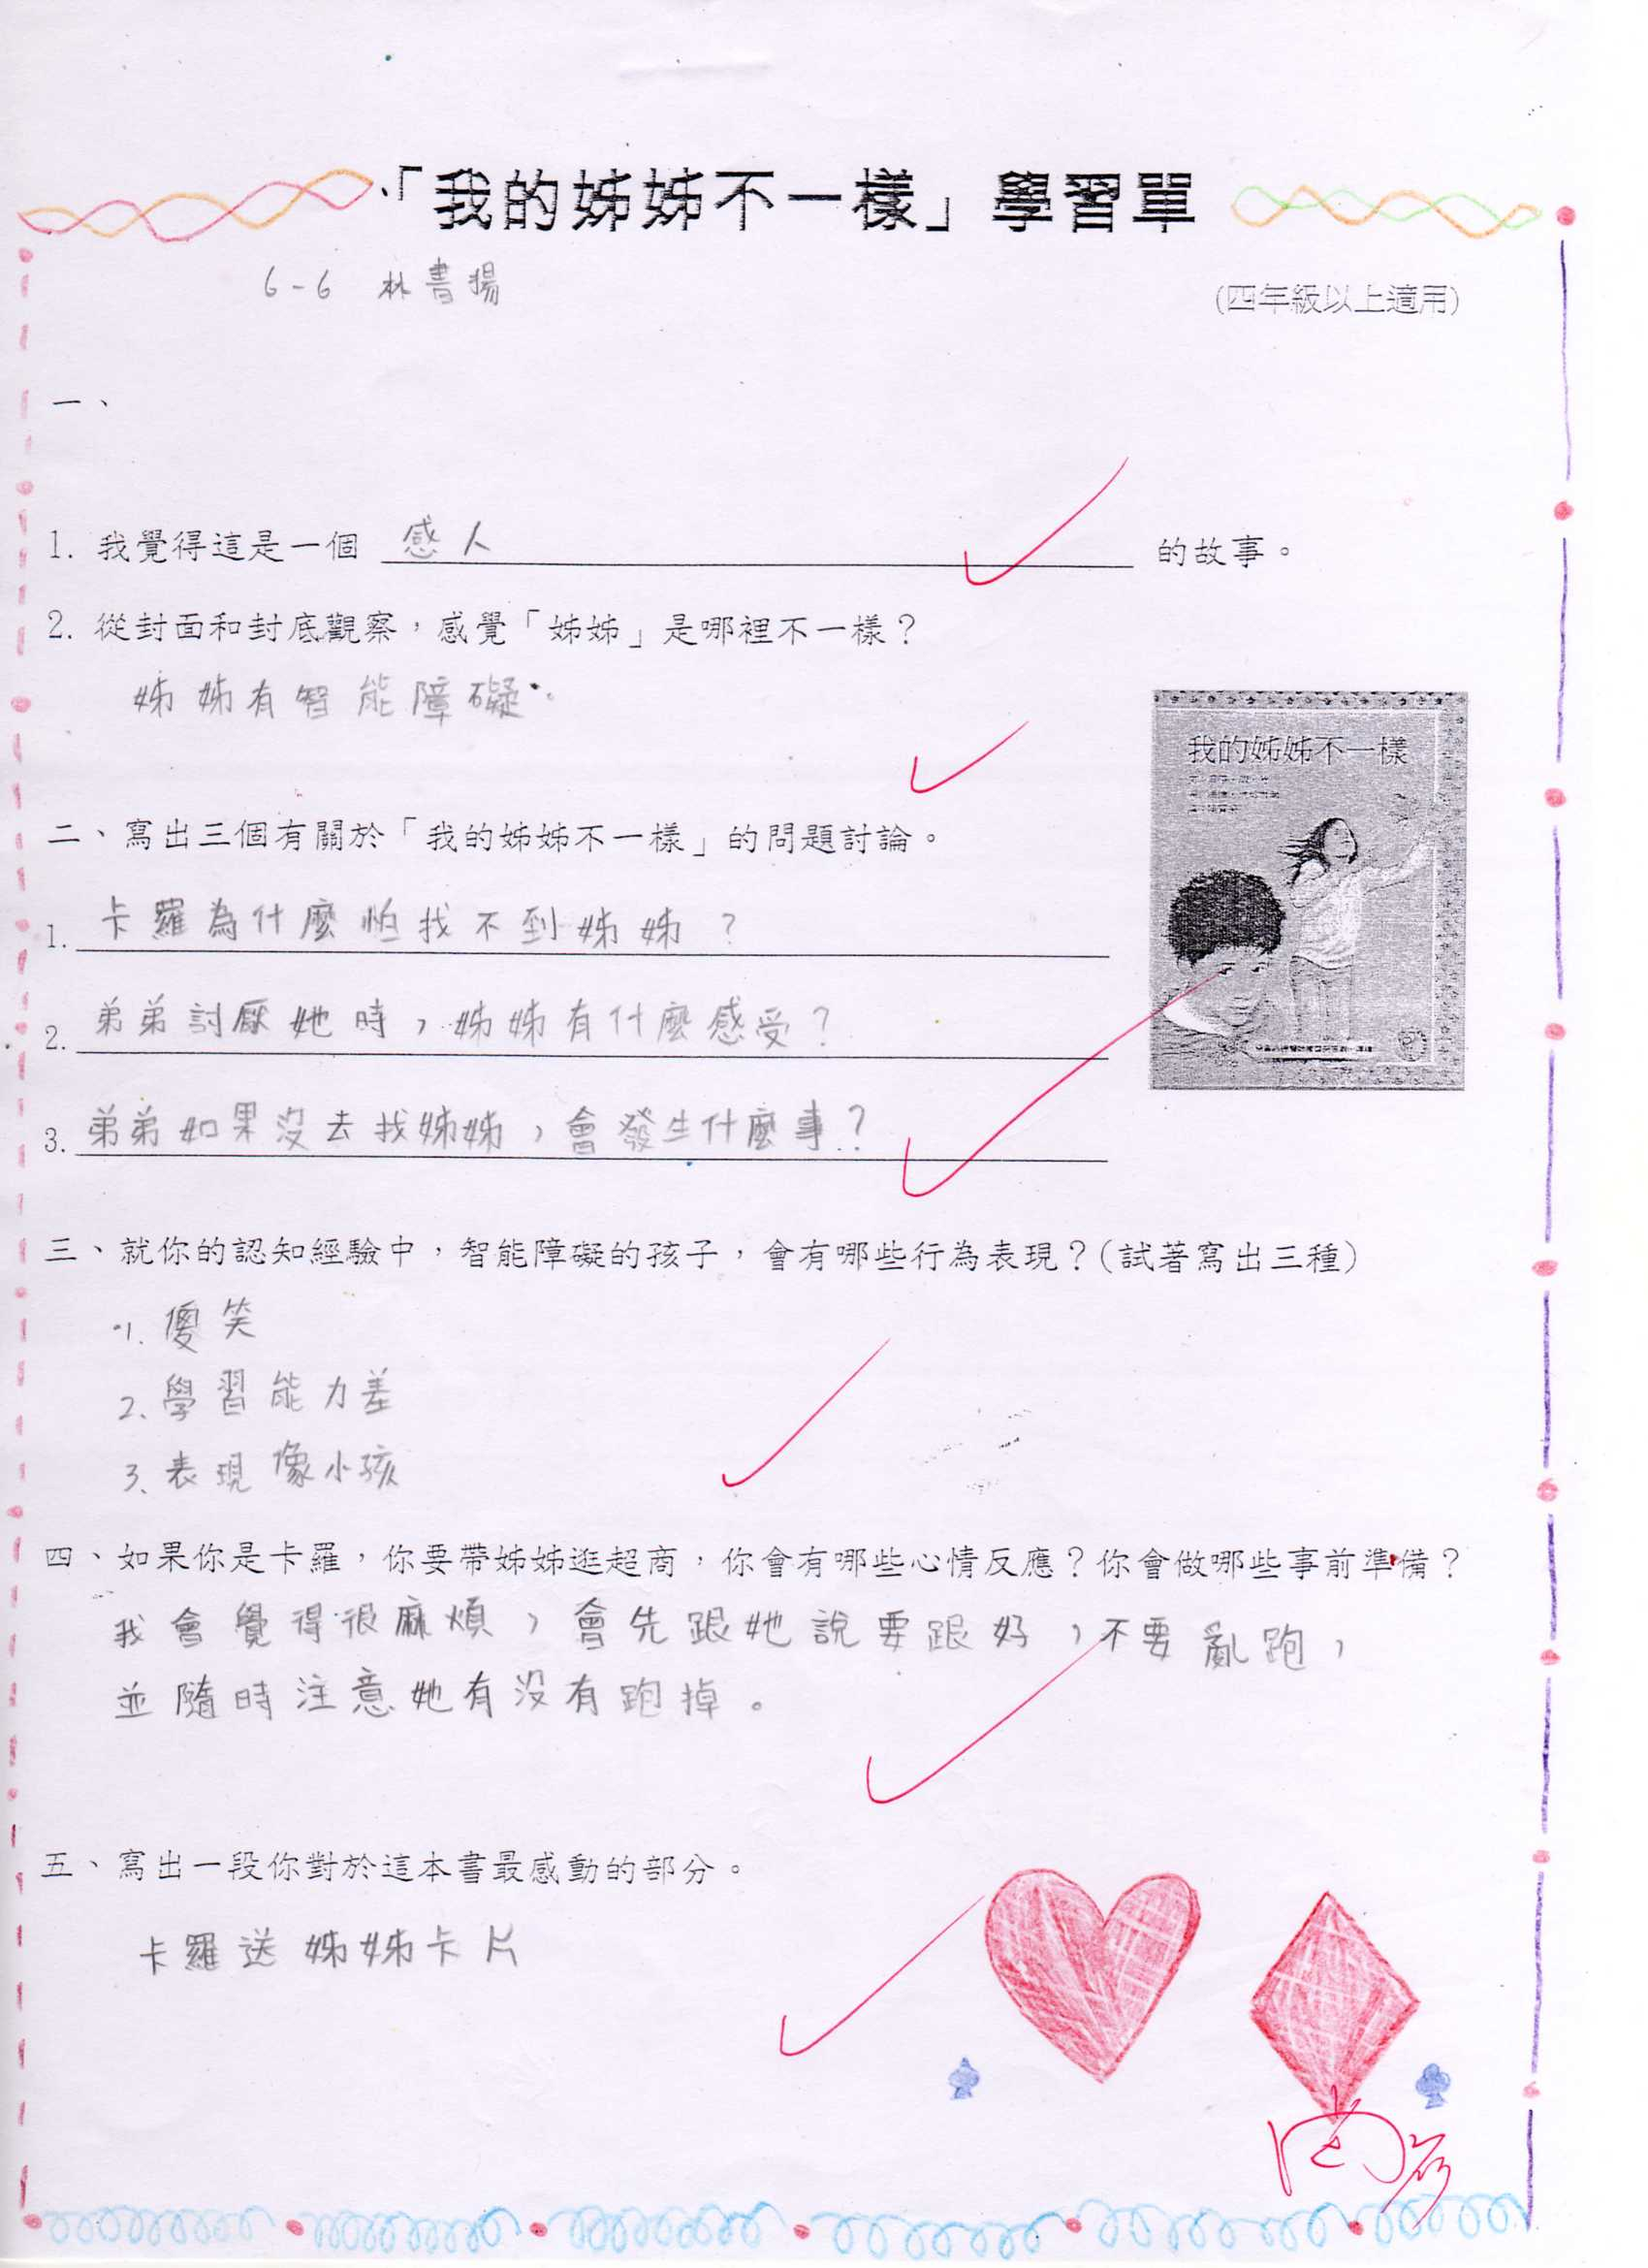 「我的姊姊不一樣」學習單
6-6 林書揚
(四年級以上適用)
一、
1. 我覺得這是一個 感人 的故事。
2. 從封面和封底觀察，感覺「姊姊」是哪裡不一樣？
姊姊有智能障礙。
我的姊姊不一樣
二、寫出三個有關於「我的姊姊不一樣」的問題討論。
1. 卡羅為什麼怕找不到姊姊？
2. 弟弟討厭她時，姊姊有什麼感受？
3. 弟弟如果沒去找姊姊，會發生什麼事？
三、就你的認知經驗中，智能障礙的孩子，會有哪些行為表現？(試著寫出三種)
1. 傻笑
2. 學習能力差
3. 表現像小孩
四、如果你是卡羅，你要帶姊姊逛超商，你會有哪些心情反應？你會做哪些事前準備？
我會覺得很麻煩，會先跟她說要跟好，不要亂跑，
並隨時注意她有沒有跑掉。
五、寫出一段你對於這本書最感動的部分。
卡羅送姊姊卡片